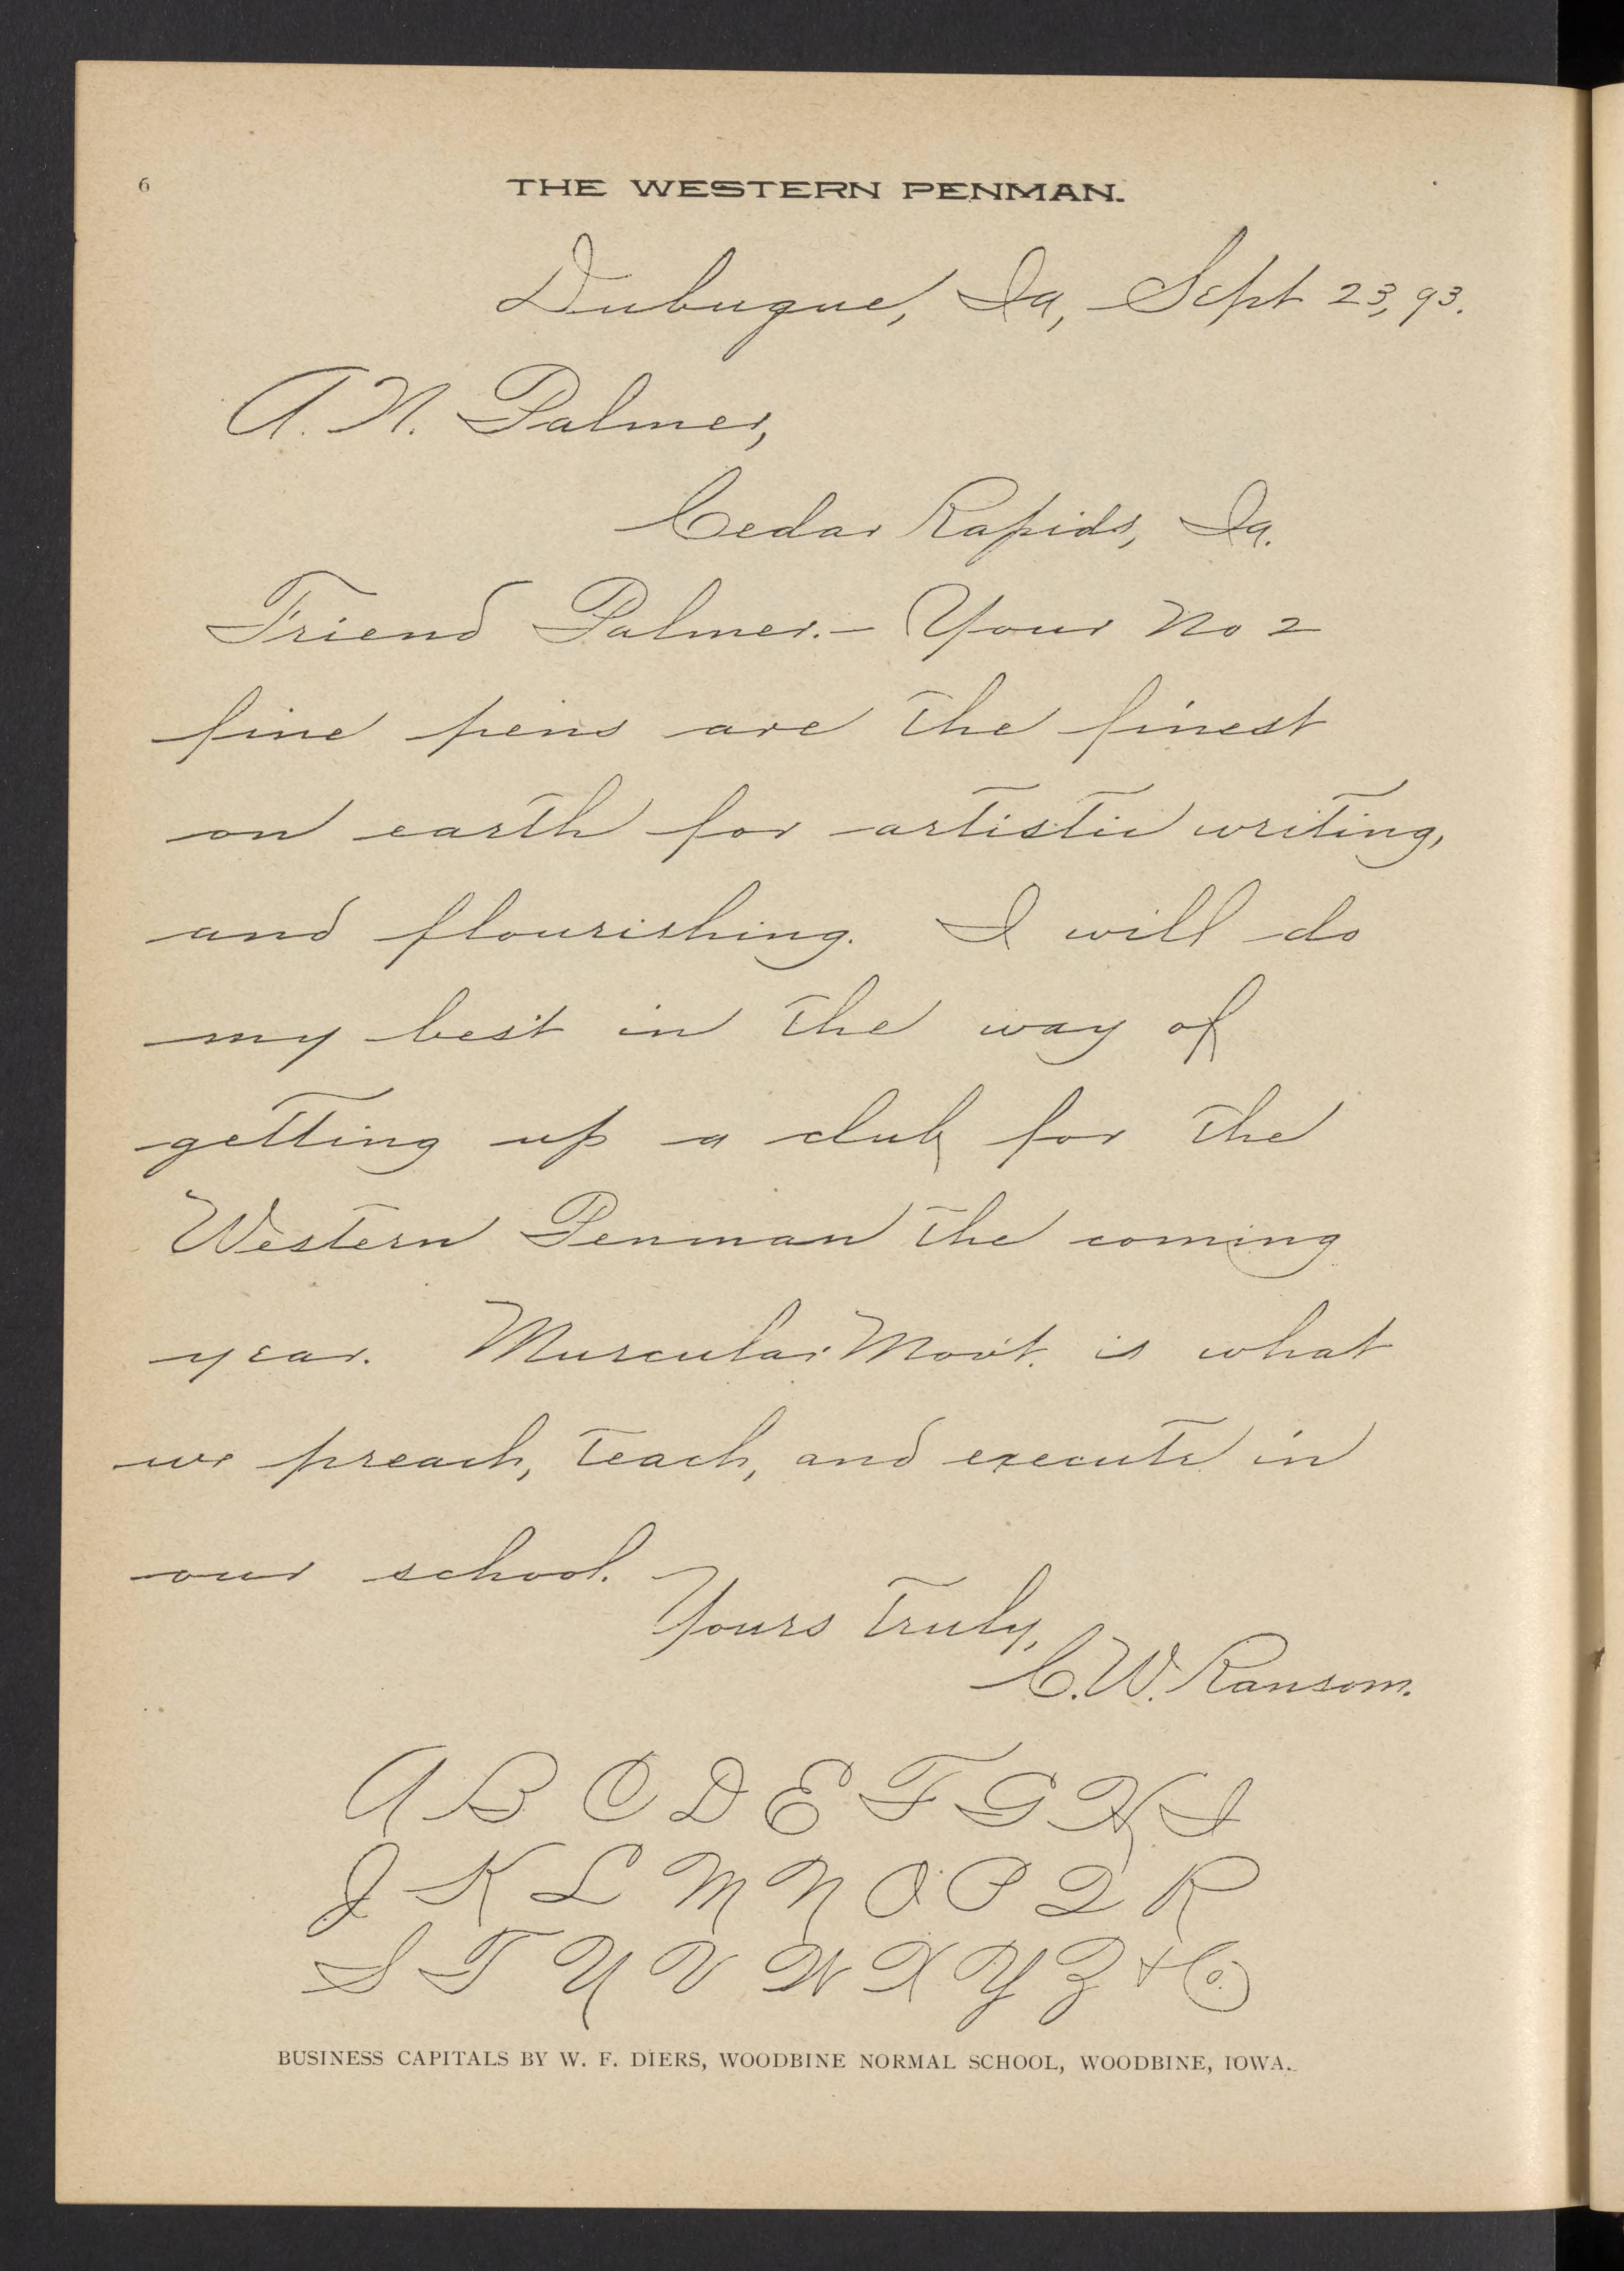 6
THE WESTERN PENMAN.
Dubuque, Ia, Sept 23, 93.
A. N. Palmer,
Cedar Rapids, Ia.
Friend Palmer.- Your No 2
fine pens are the finest
on earth for artistic writing,
and flourishing. I will do
my best in the way of
getting up a club for the
Western Penman the coming
year. Muscular Mov't. is what
we preach, teach, and execute in
our school.
Yours truly,
C. W. Ransom.
A B C D E F G H I
J K L M N O P Q R
S T U V W X Y Z & Co.
BUSINESS CAPITALS BY W. F. DIERS, WOODBINE NORMAL SCHOOL, WOODBINE, IOWA.